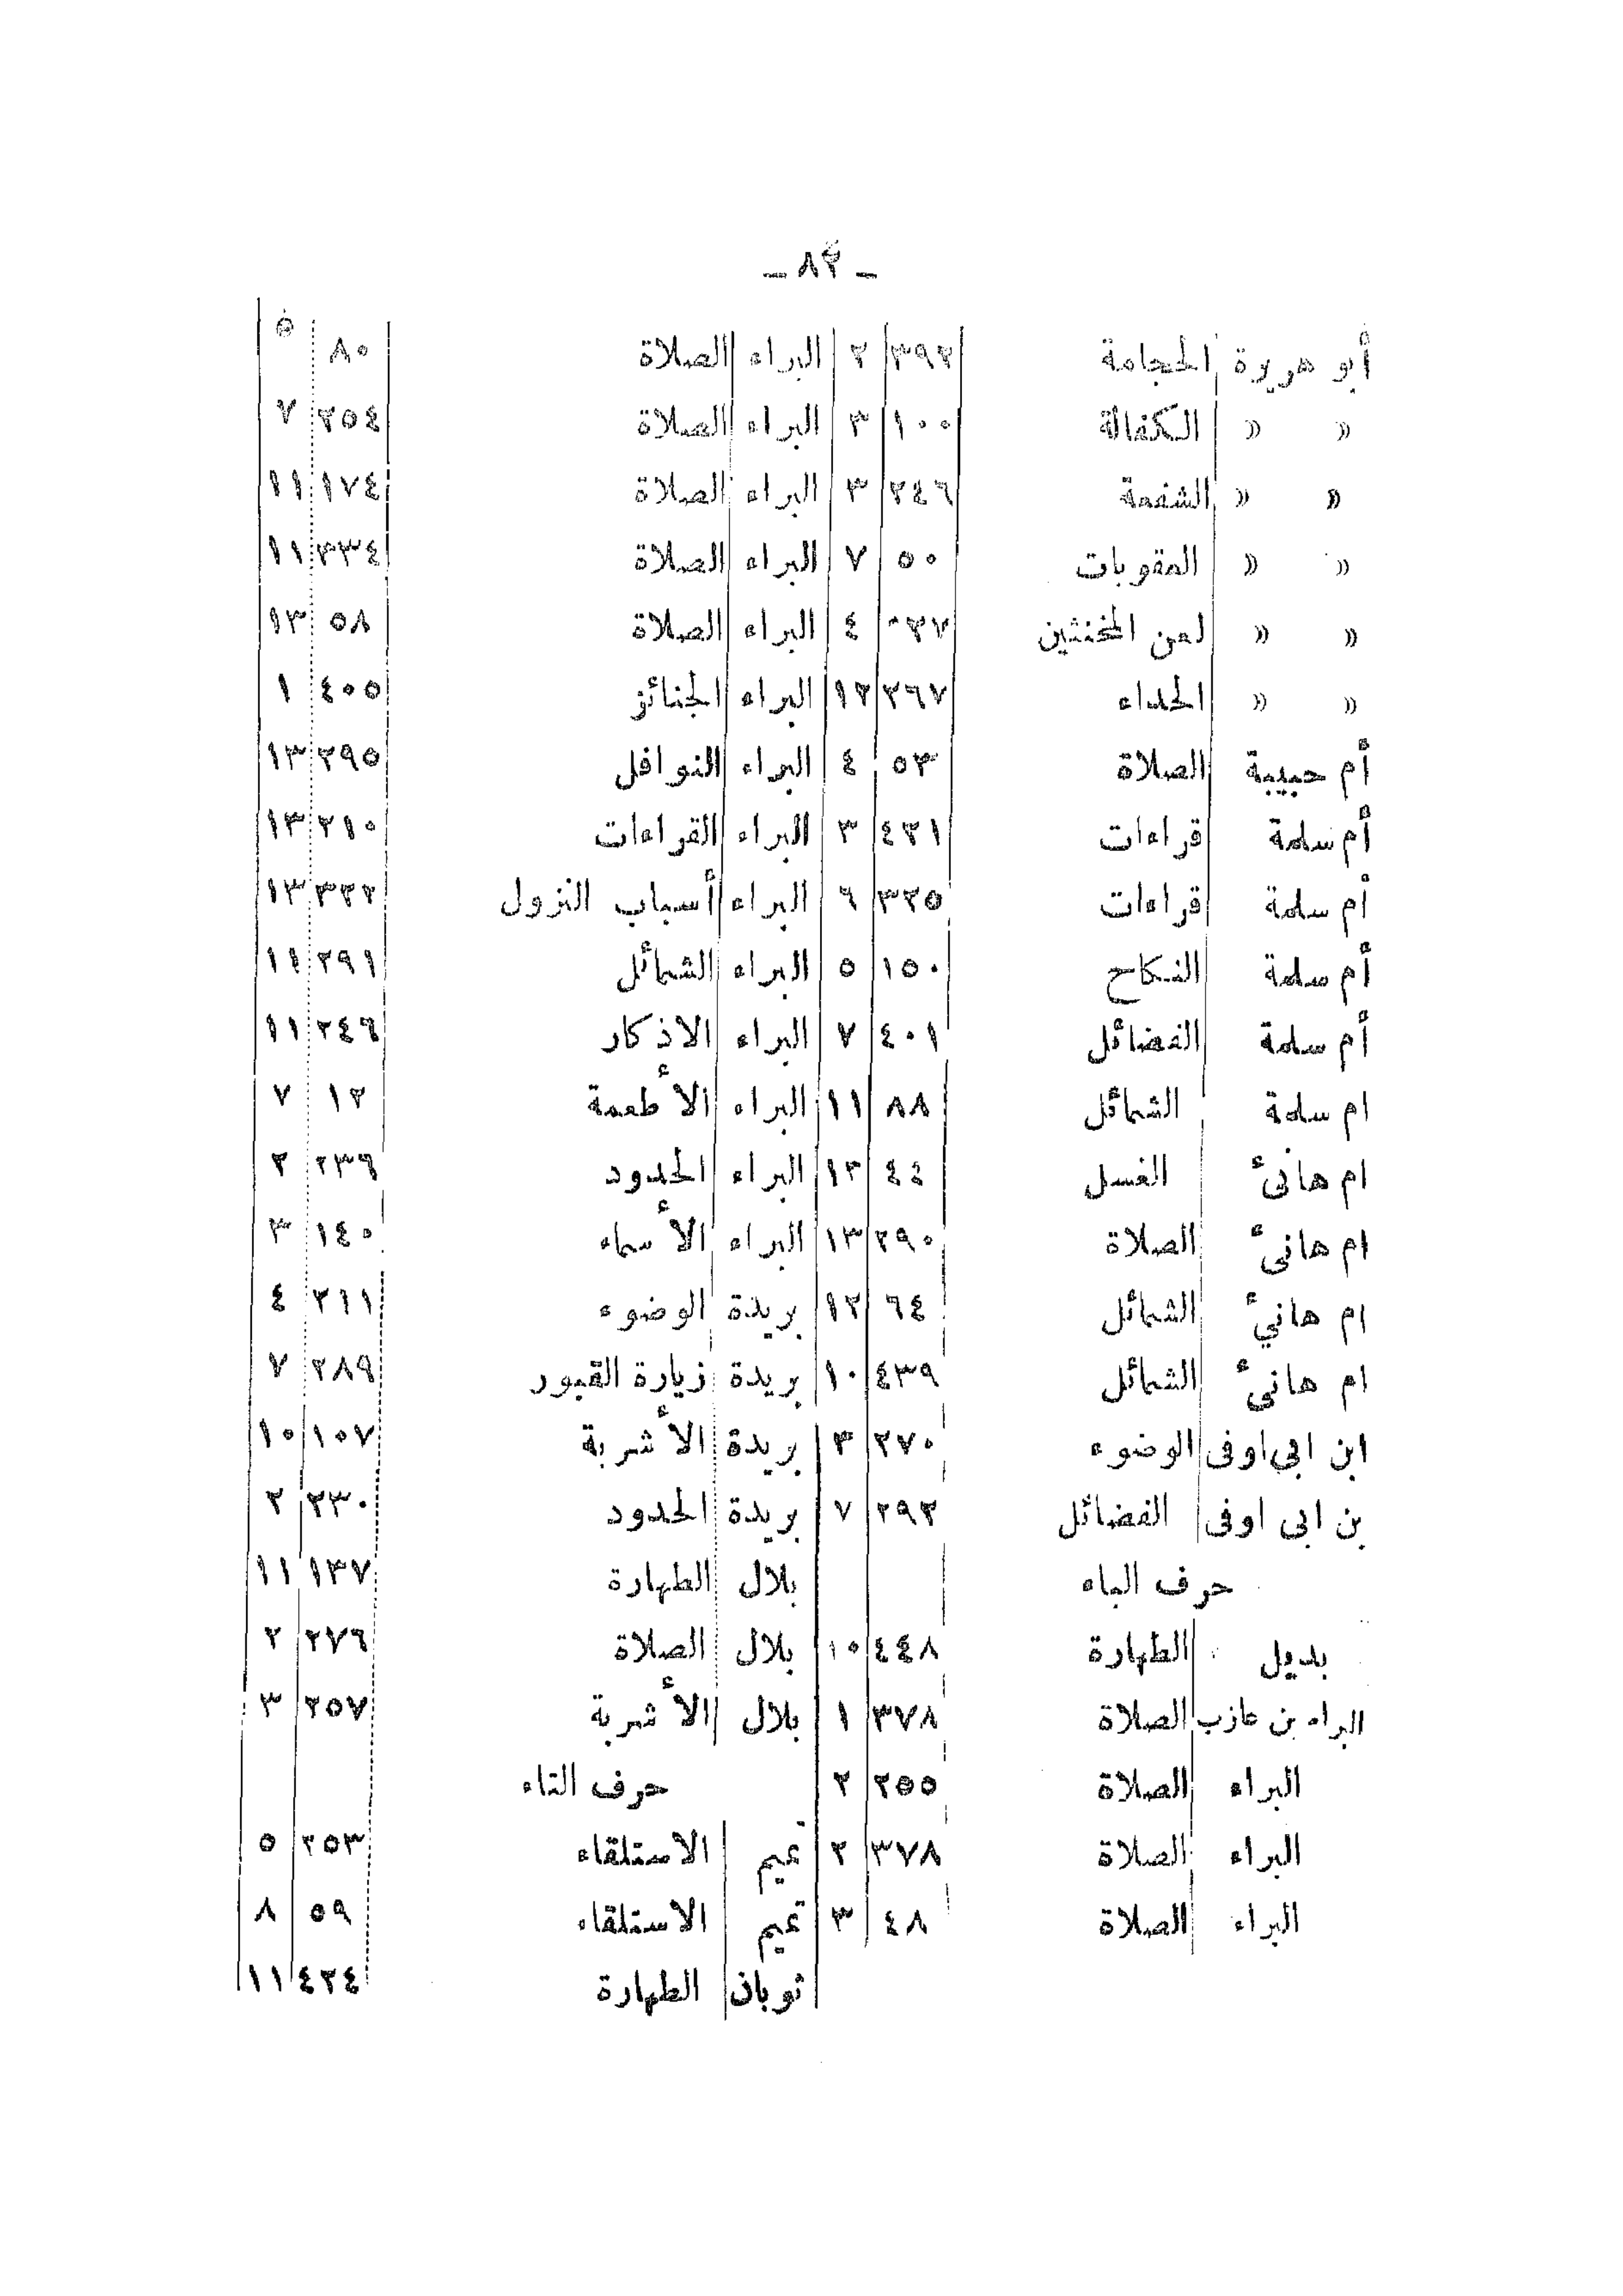 ـ ٨٢ ـ
أبو هريرة الحجامة ٣٩٢ ٢
« « الكفالة ١٠٠ ٣
« « الشفعة ٢٤٦ ٣
« « العقوبات ٥٠ ٧
« « لعن المخنثين ٣٧٠ ٤
« « الحداء ٢٦٧ ١٢
أم حبيبة الصلاة ٥٣ ٤
أم سلمة قراءات ٤٢١ ٣
أم سلمة قراءات ٣٢٥ ٦
أم سلمة النكاح ١٥٠ ٥
أم سلمة الفضائل ٤٠١ ٧
ام سلمة الشمائل ٨٨ ١١
ام هانئ الغسل ٤٤ ١٣
ام هانئ الصلاة ٢٩٠ ١٣
ام هانئ الشمائل ٦٤ ١٢
ام هانئ الشمائل ٤٣٩ ١٠
ابن ابي اوفى الوضوء ٢٧٠ ٣
بن ابى اوفى الفضائل ٢٩٢ ٧
حرف الباء
بديل الطهارة ٤٤٨ ١٠
البراء بن عازب الصلاة ٣٧٨ ١
البراء الصلاة ٢٥٥ ٢
البراء الصلاة ٣٧٨ ٢
البراء الصلاة ٤٨ ٣
البراء الصلاة ٨٠ ٥
البراء الصلاة ٢٥٤ ٧
البراء الصلاة ١٧٤ ١١
البراء الصلاة ٣٣٤ ١١
البراء الصلاة ٥٨ ١٣
البراء الجنائز ٤٠٥ ١
البراء النوافل ٢٩٥ ١٣
البراء القراءات ٢١٠ ١٣
البراء أسباب النزول ٣٢٢ ١٣
البراء الشمائل ٢٩١ ١١
البراء الاذكار ٢٤٦ ١١
البراء الأطعمة ١٢ ٧
البراء الحدود ٢٣٦ ٢
البراء الأسماء ١٤٠ ٣
بريدة الوضوء ٢١١ ٤
بريدة زيارة القبور ٢٨٩ ٧
بريدة الأشربة ١٠٧ ١٠
بريدة الحدود ٢٣٠ ٢
بلال الطهارة ١٣٧ ١١
بلال الصلاة ٢٧٦ ٢
بلال الأشربة ٢٥٧ ٣
حرف التاء
تميم الاستلقاء ٢٥٣ ٥
تميم الاستلقاء ٥٩ ٨
ثوبان الطهارة ٤٢٤ ١١